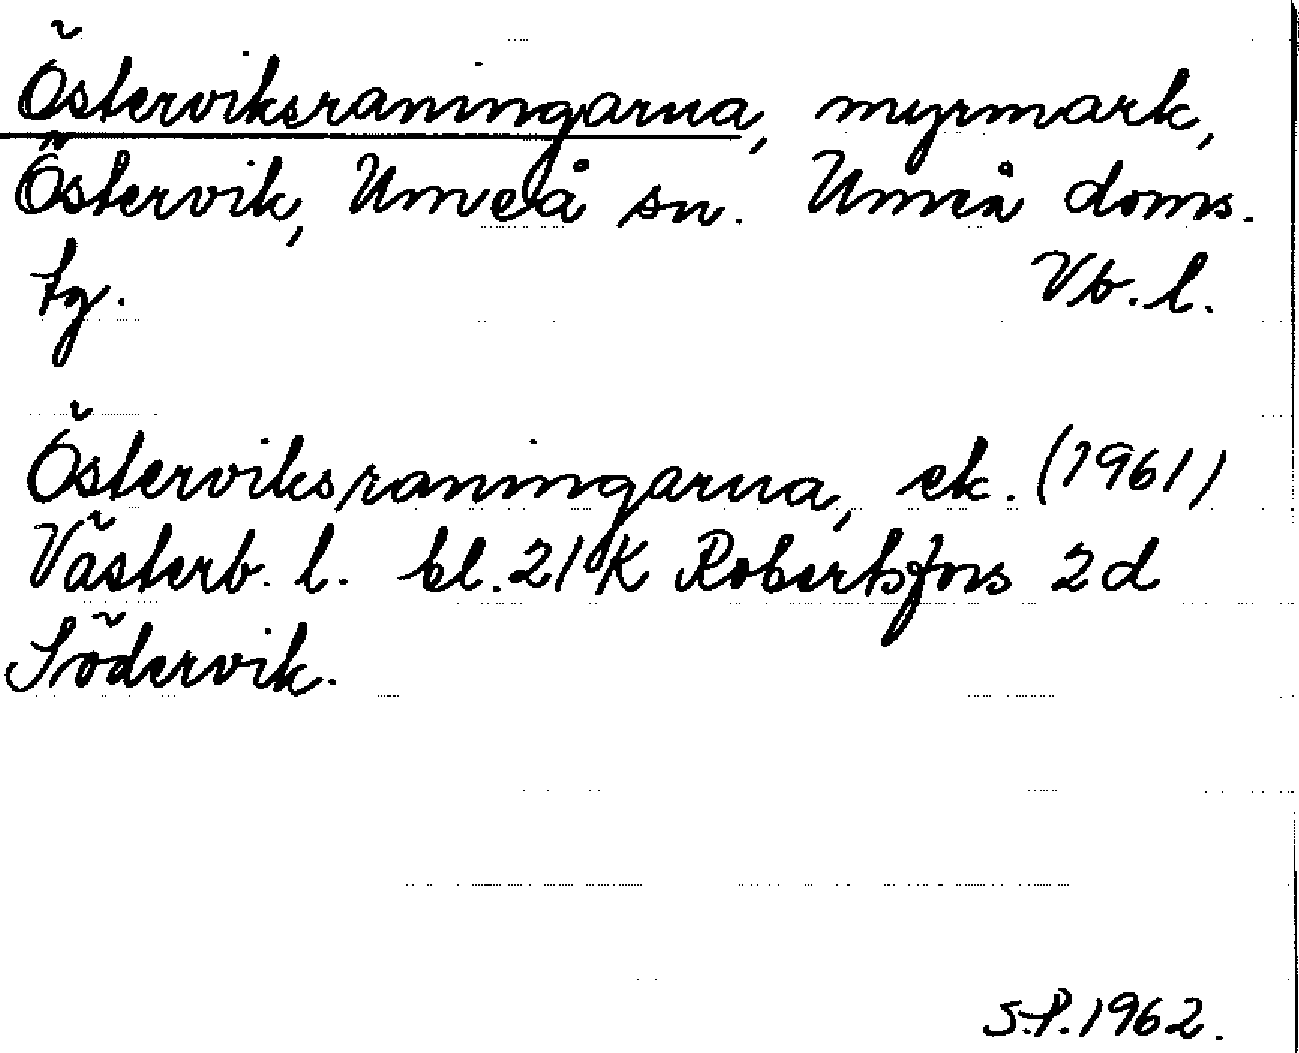 Österviksraningarna, myrmark,
Östervik, Umeå sn. Umeå doms.
tg. Vb. l.
Österviksraningarna, ek. (1961)
Västerb. l. bl. 21K Robertsfors 2d
Södervik.
S.P. 1962.